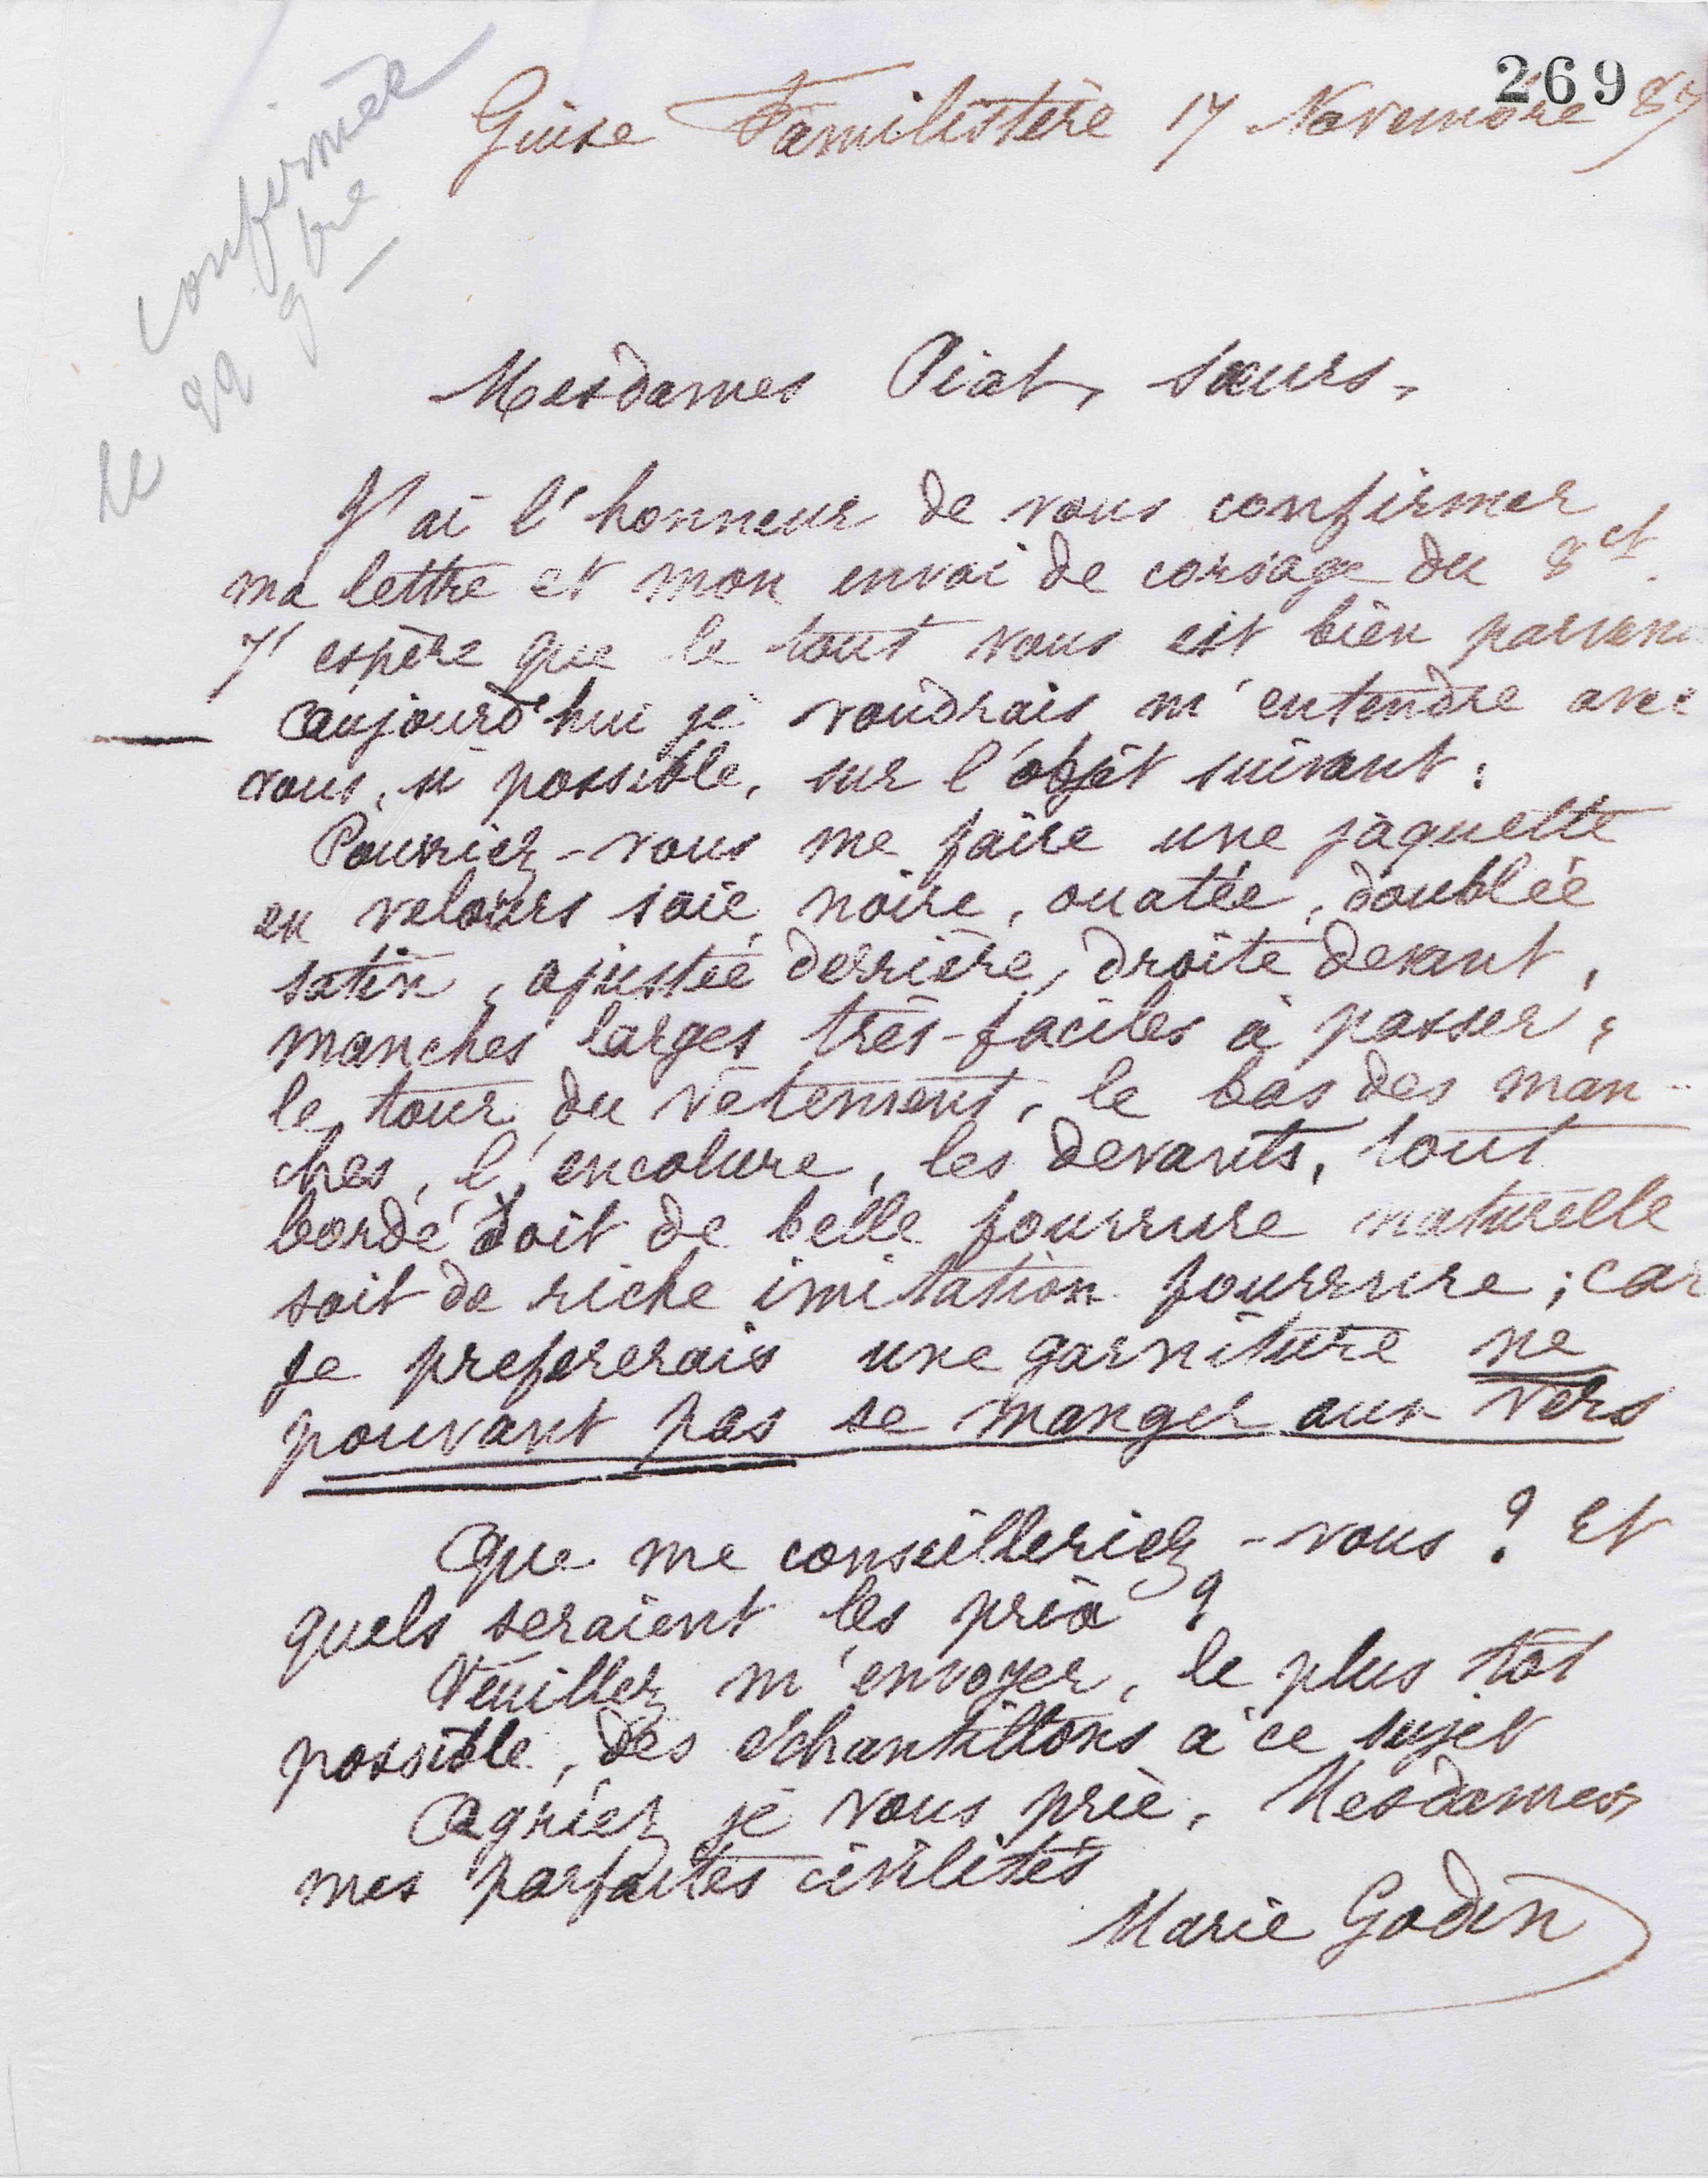 269
Guise Familistère 17 Novembre 87
confirmée
le 22 9bre
Mesdames Piat, sœurs,
J'ai l'honneur de vous confirmer
ma lettre et mon envoi de corsage du 8 ct.
J'espère que le tout vous est bien parvenu
Aujourd'hui je voudrais m'entendre avec
vous, si possible, sur l'objet suivant :
Pourriez-vous me faire une jaquette
en velours soie noire, ouatée, doublée
satin, ajustée derrière, droite devant,
manches larges très-faciles à passer ;
le tour du vêtement, le bas des man-
ches, l'encolure, les devants, tout
bordé soit de belle fourrure naturelle
soit de riche imitation fourrure ; car
je prefererais une garniture ne
pouvant pas se manger aux vers
Que me conseilleriez-vous ? Et
quels seraient les prix ?
Veuillez m'envoyer, le plus tôt
possible, des échantillons à ce sujet
Agréez je vous prie, Mesdames,
mes parfaites civilités
Marie Godin